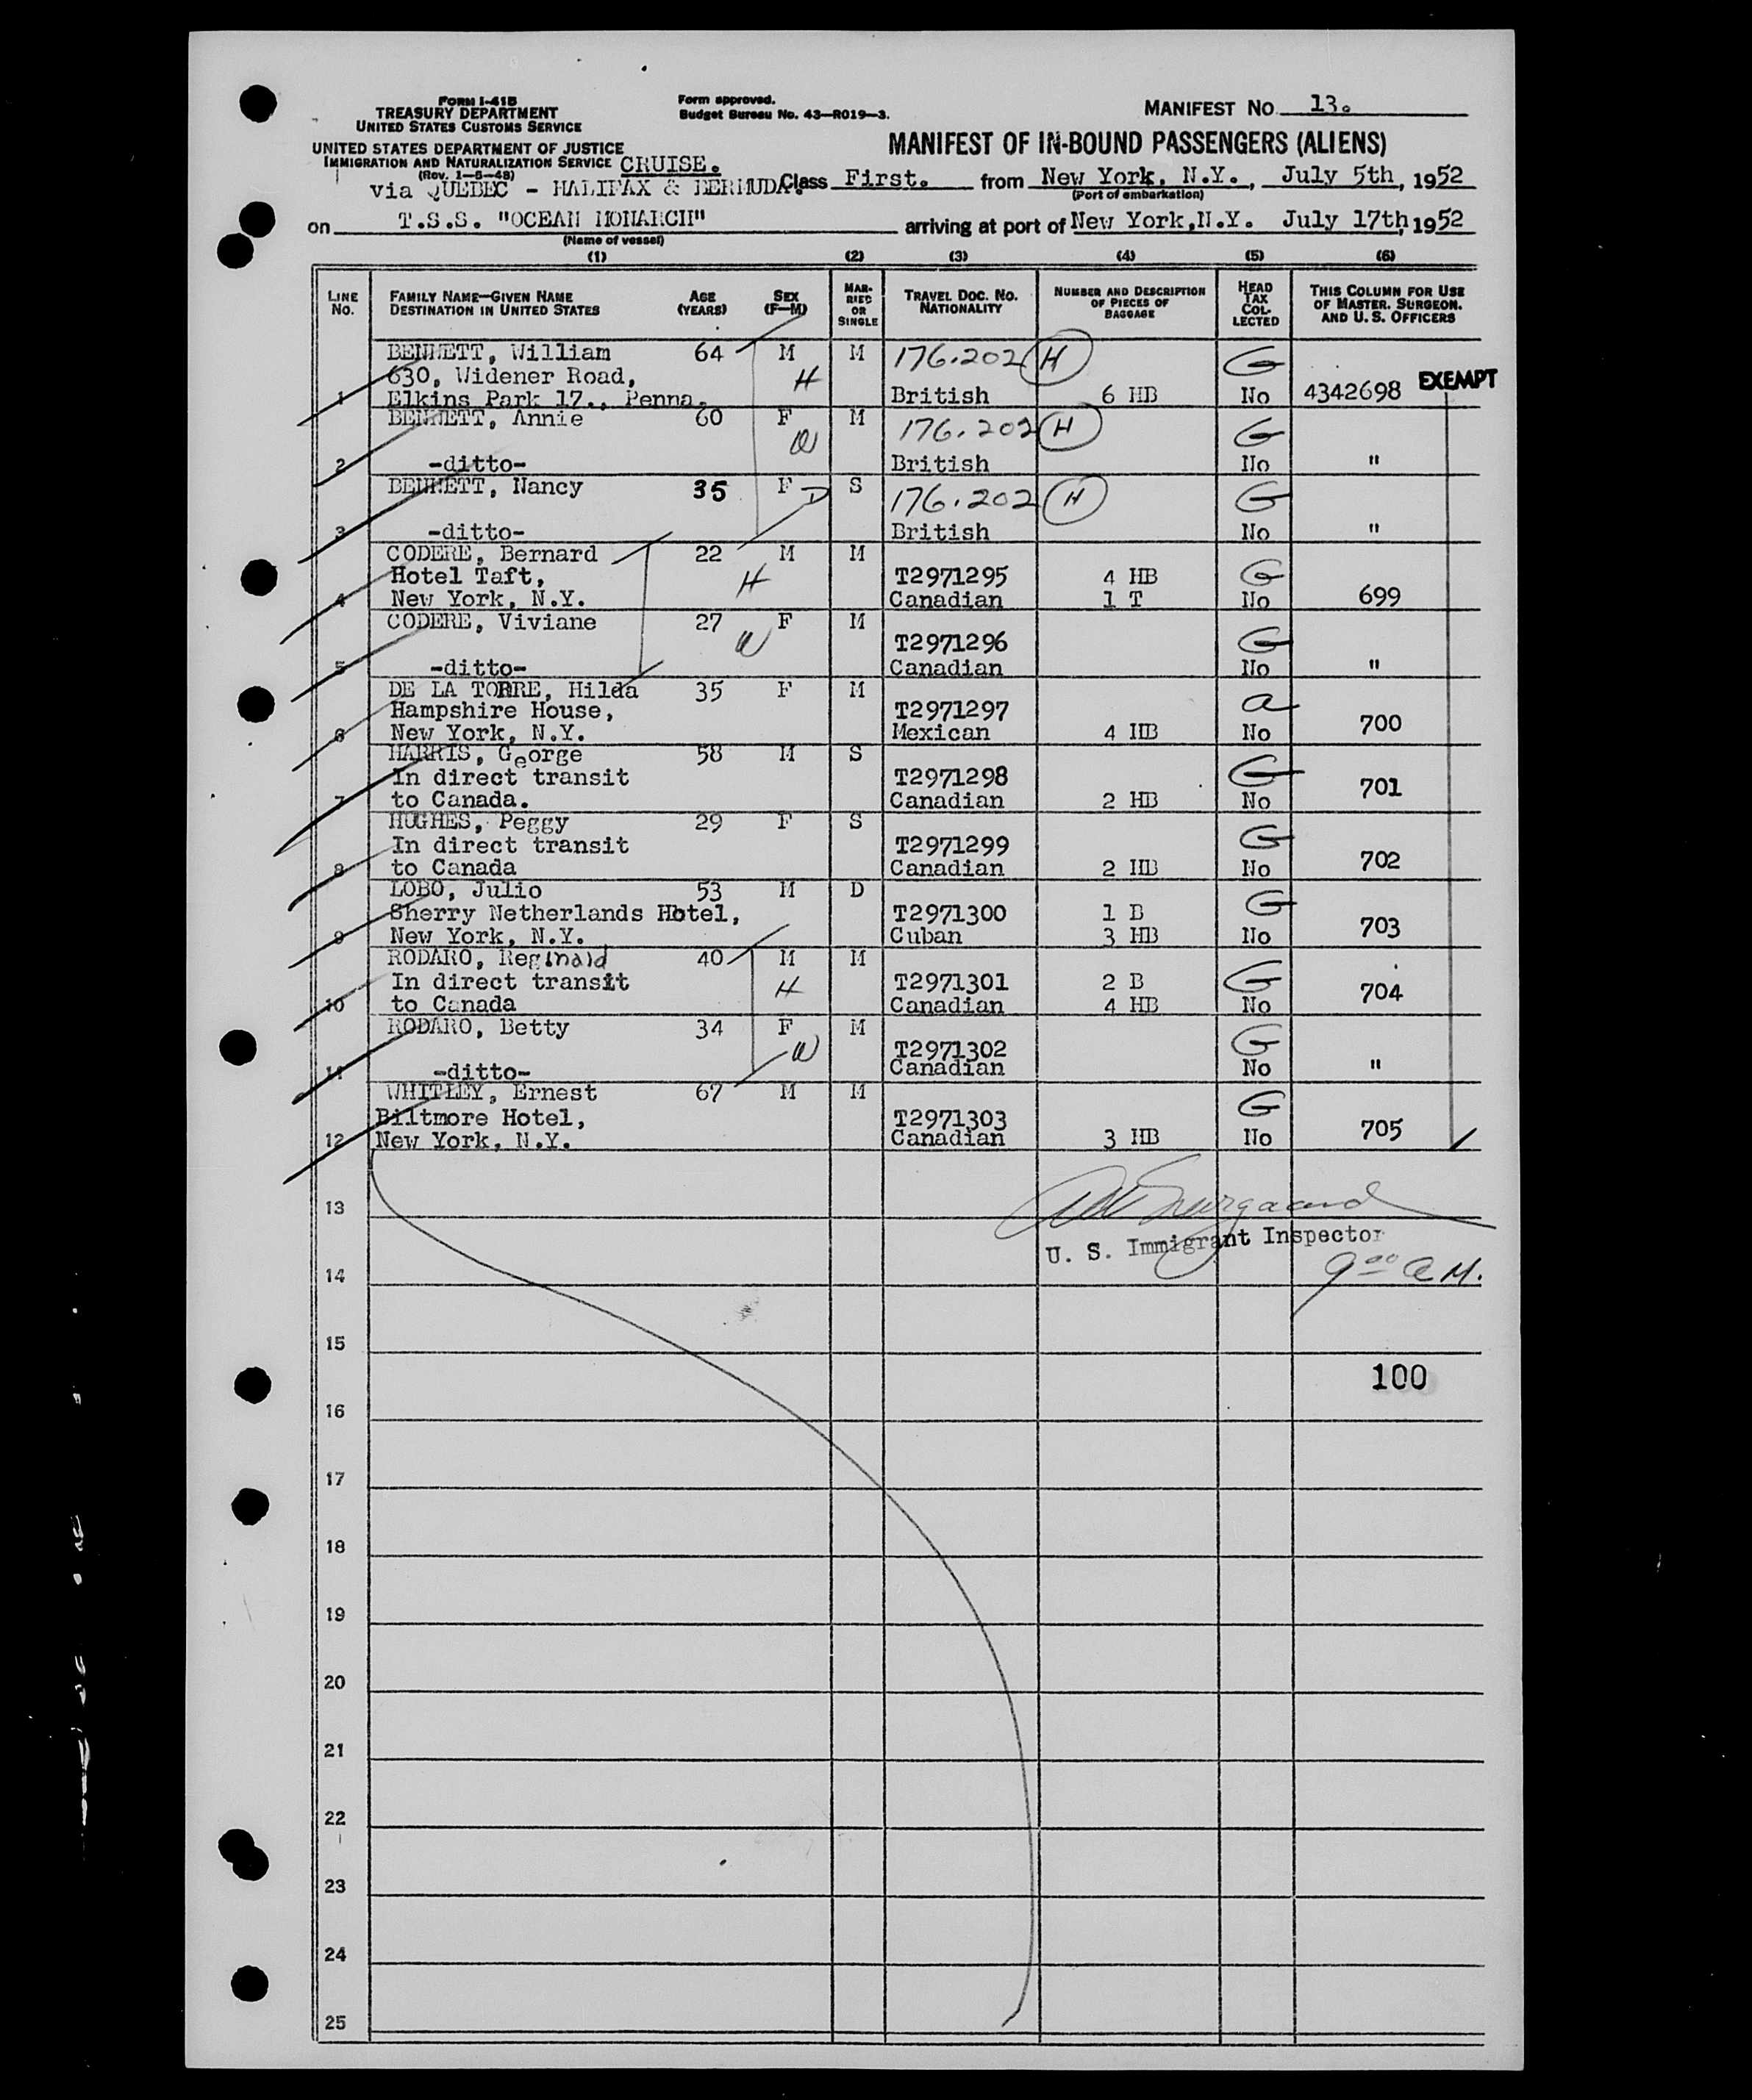 FORM I-415
TREASURY DEPARTMENT
UNITED STATES CUSTOMS SERVICE
UNITED STATES DEPARTMENT OF JUSTICE
IMMIGRATION AND NATURALIZATION SERVICE
(Rev. 1-5-48)
Form approved.
Budget Bureau No. 43-R019-3.
MANIFEST NO. 13.
MANIFEST OF IN-BOUND PASSENGERS (ALIENS)
CRUISE.
via QUEBEC - HALIFAX & BERMUDA. Class First. from New York, N.Y., July 5th, 1952
(Port of embarkation)
on T.S.S. "OCEAN MONARCH" arriving at port of New York, N.Y. July 17th, 1952
(Name of vessel)
(1) (2) (3) (4) (5) (6)
LINE NO. FAMILY NAME—GIVEN NAME DESTINATION IN UNITED STATES AGE (YEARS) SEX (F—M) MARRIED OR SINGLE TRAVEL DOC. NO. NATIONALITY NUMBER AND DESCRIPTION OF PIECES OF BAGGAGE HEAD TAX COLLECTED THIS COLUMN FOR USE OF MASTER. SURGEON. AND U. S. OFFICERS
BENNETT, William 64 M M 176.202 H G
630, Widener Road, H
1 Elkins Park 17., Penna. British 6 HB No 4342698 EXEMPT
BENNETT, Annie 60 F M 176.202 H G
W
2 -ditto- British No "
BENNETT, Nancy 35 F D S 176.202 H G
3 -ditto- British No "
CODERE, Bernard 22 M M
Hotel Taft, H T2971295 4 HB G
4 New York, N.Y. Canadian 1 T No 699
CODERE, Viviane 27 F M
W T2971296 G
5 -ditto- Canadian No "
DE LA TORRE, Hilda 35 F M
Hampshire House, T2971297 a
6 New York, N.Y. Mexican 4 HB No 700
HARRIS, George 58 M S
In direct transit T2971298 G
7 to Canada. Canadian 2 HB No 701
HUGHES, Peggy 29 F S
In direct transit T2971299 G
8 to Canada Canadian 2 HB No 702
LOBO, Julio 53 M D
Sherry Netherlands Hotel, T2971300 1 B G
9 New York, N.Y. Cuban 3 HB No 703
RODARO, Reginald 40 M M
In direct transit H T2971301 2 B G
10 to Canada Canadian 4 HB No 704
RODARO, Betty 34 F M
W T2971302 G
11 -ditto- Canadian No "
WHITLEY, Ernest 67 M M
Biltmore Hotel, T2971303 G
12 New York, N.Y. Canadian 3 HB No 705
13
U. S. Immigrant Inspector
14 9 00 A M.
15
100
16
17
18
19
20
21
22
23
24
25